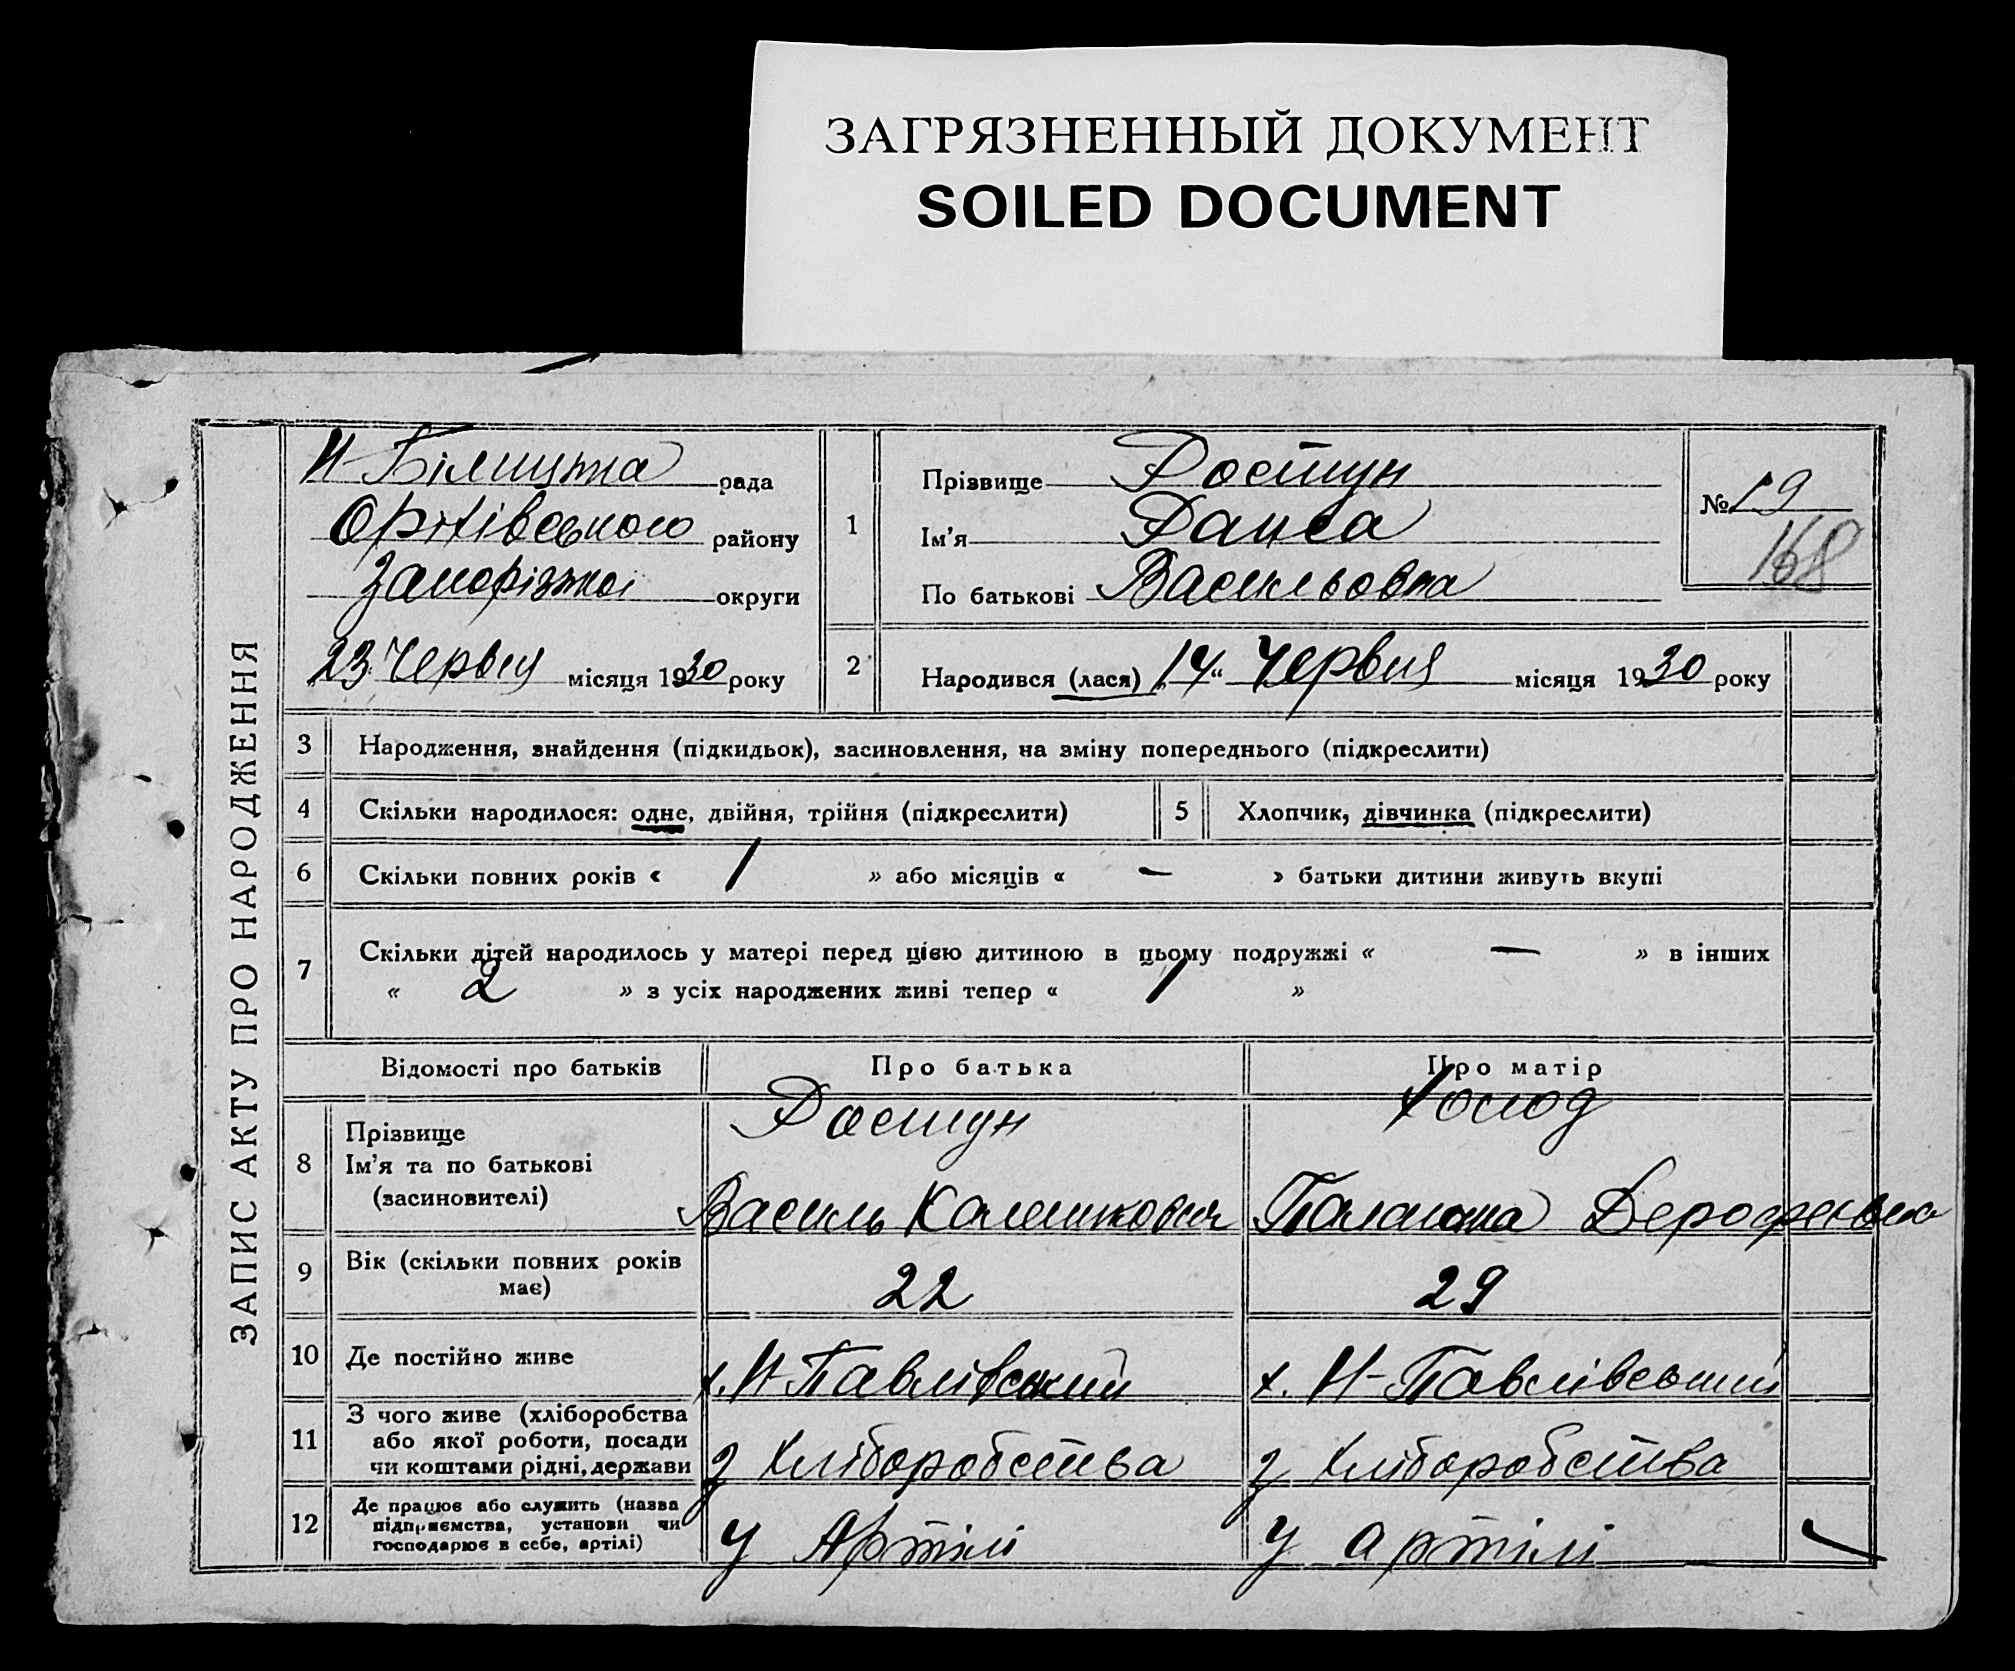 ЗАГРЯЗНЕННЫЙ ДОКУМЕНТ
SOILED DOCUMENT
ЗАПИС АКТУ ПРО НАРОДЖЕННЯ
рада
Оріхівського району
Запорізької округи
23 Червня місяця 1930 року
1
Прізвище Достун
Ім'я
По батькові Васильовна
№ 19
168
2
Народився (лася) „14“ Червня місяця 1930 року
3 Народження, знайдення (підкидьок), засиновлення, на зміну попереднього (підкреслити)
4 Скільки народилося: одне, двійня, трійня (підкреслити)
5 Хлопчик, дівчинка (підкреслити)
6 Скільки повних років « 1 » або місяців « — » батьки дитини живуть вкупі
7 Скільки дітей народилось у матері перед цією дитиною в цьому подружжі « — » в інших
« 2 » з усіх народжених живі тепер « 1 »
Відомості про батьків
Про батька
Про матір
8
Прізвище
Ім'я та по батькові
(засиновителі)
Достун
Василь
Холод
9
Вік (скільки повних років
має)
22
29
10 Де постійно живе
х. Н-Павлівський
х. Н-Павлівський
11
З чого живе (хліборобства
або якої роботи, посади
чи коштами рідні, держави
з хліборобства
з хліборобства
12
Де працює або служить (назва
підприємства, установи чи
господарює в себе, артілі)
У Артілі
У артілі